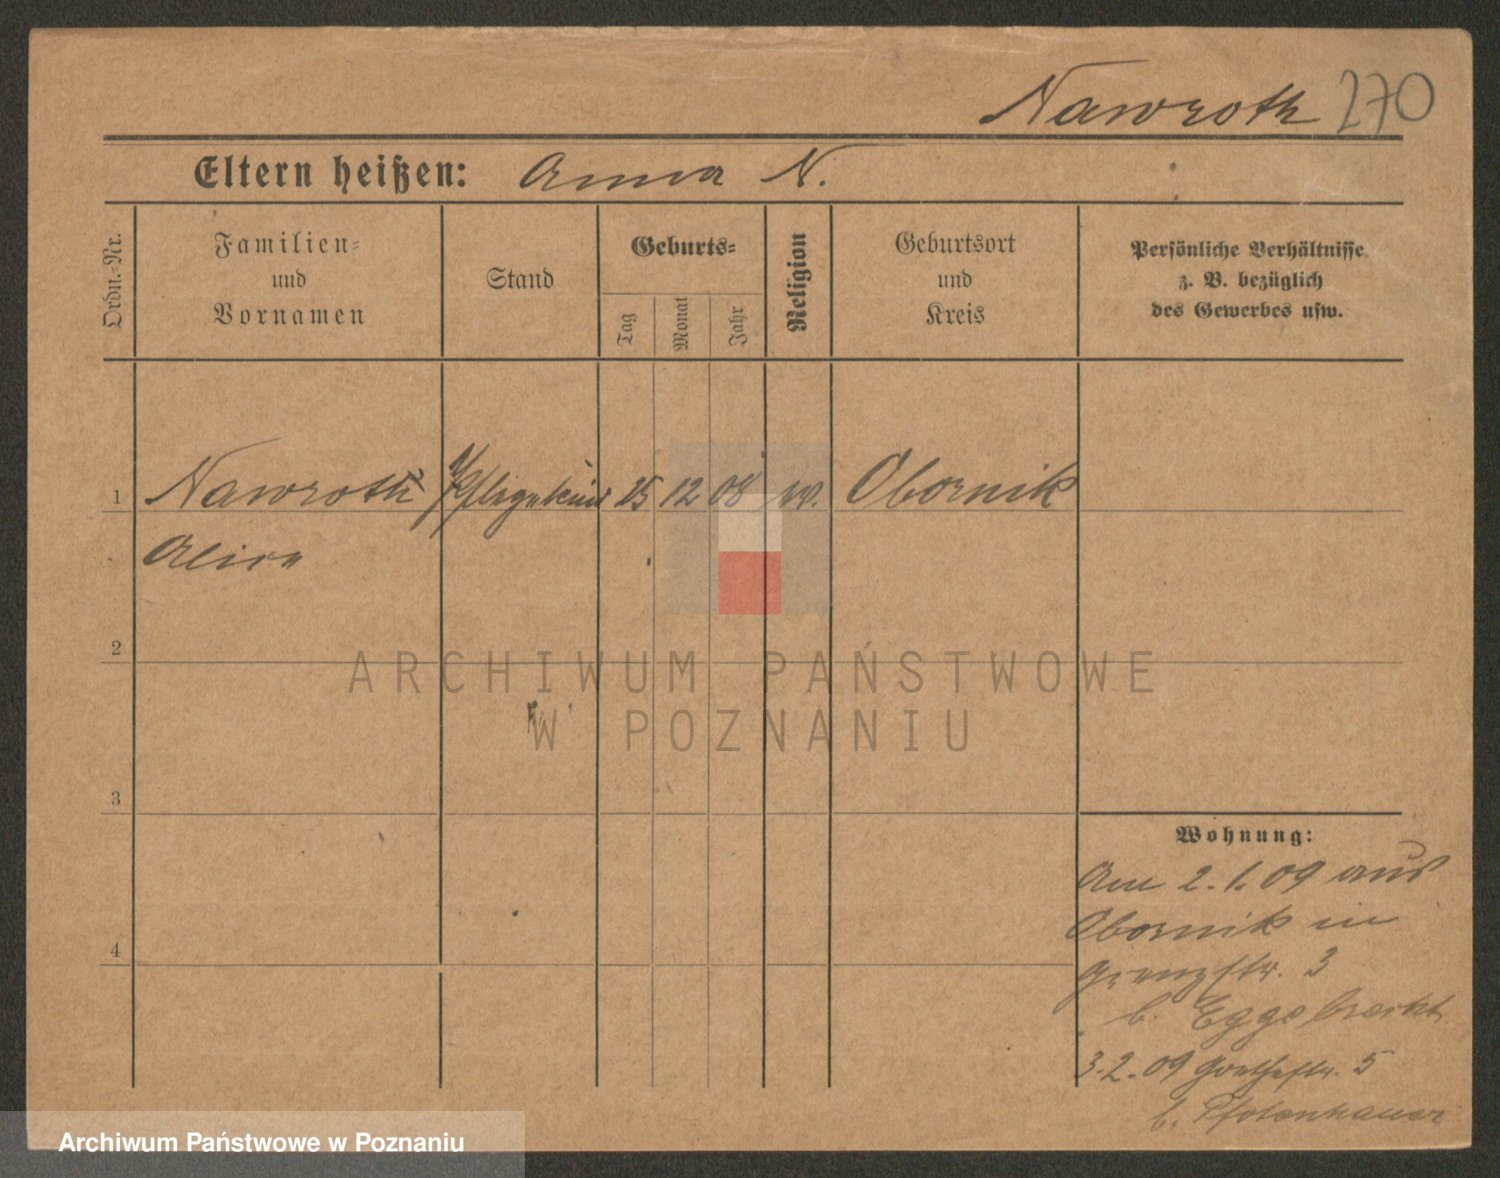 Nawroth 270
Eltern heißen: Anna N.
Ordn.-Nr.
Familien-
und
Vornamen
Stand
Geburts-
Tag
Monat
Jahr
Religion
Geburtsort
und
Kreis
Persönliche Verhältnisse
z. B. bezüglich
des Gewerbes usw.
1 Nawroth Pflegekind 25 12 08 Obornik
2
ARCHIWUM PAŃSTWOWE
W POZNANIU
3
Wohnung:
Am 2.1.09 aus
Obornik in
4
Grenzstr. 3
b. Eggebrecht
3.2.09 Goethestr. 5
b. Pfotenhauer
Archiwum Państwowe w Poznaniu